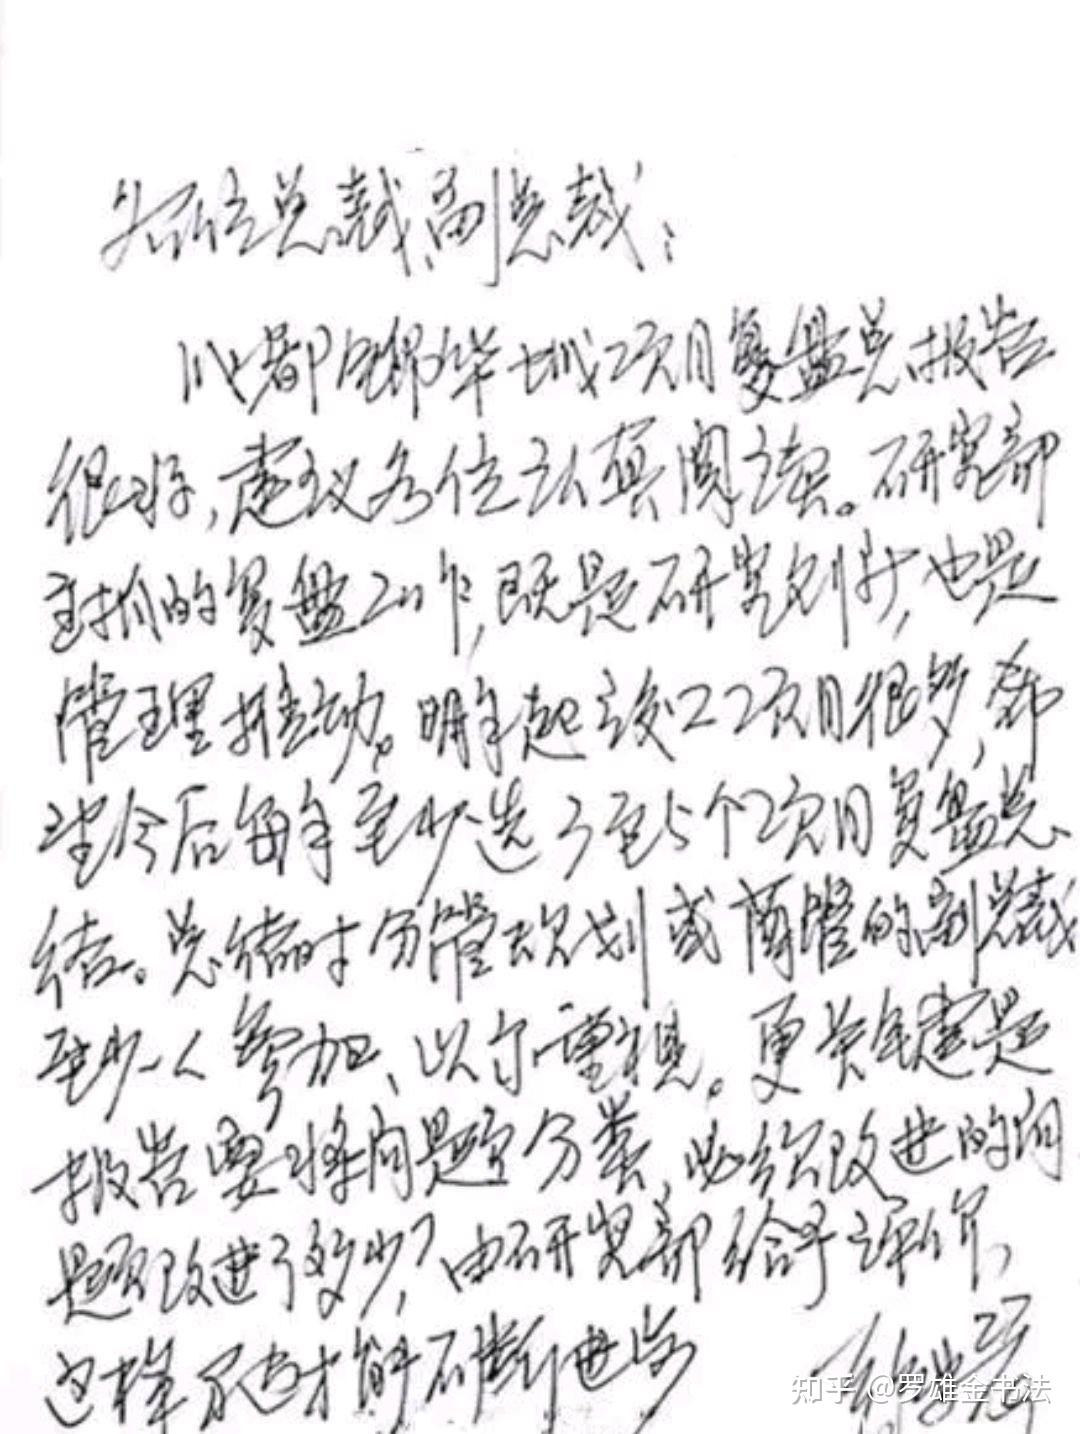 各位总裁、副总裁：
成都融侨华城项目复盘总报告
很好，建议各位认真阅读。研究部
主抓的复盘工作，既是研究创新，也是
管理推动。明年起竣工项目很多，希
望今后每年至少选3至5个项目复盘总
结。总结时分管规划或商管的副总裁
至少一人参加、以示重视。更关键是
报告要将问题分类，必须改进的问
题改进了多少？由研究部给予评价，
这样万达才能不断进步
知乎 @罗雄金书法